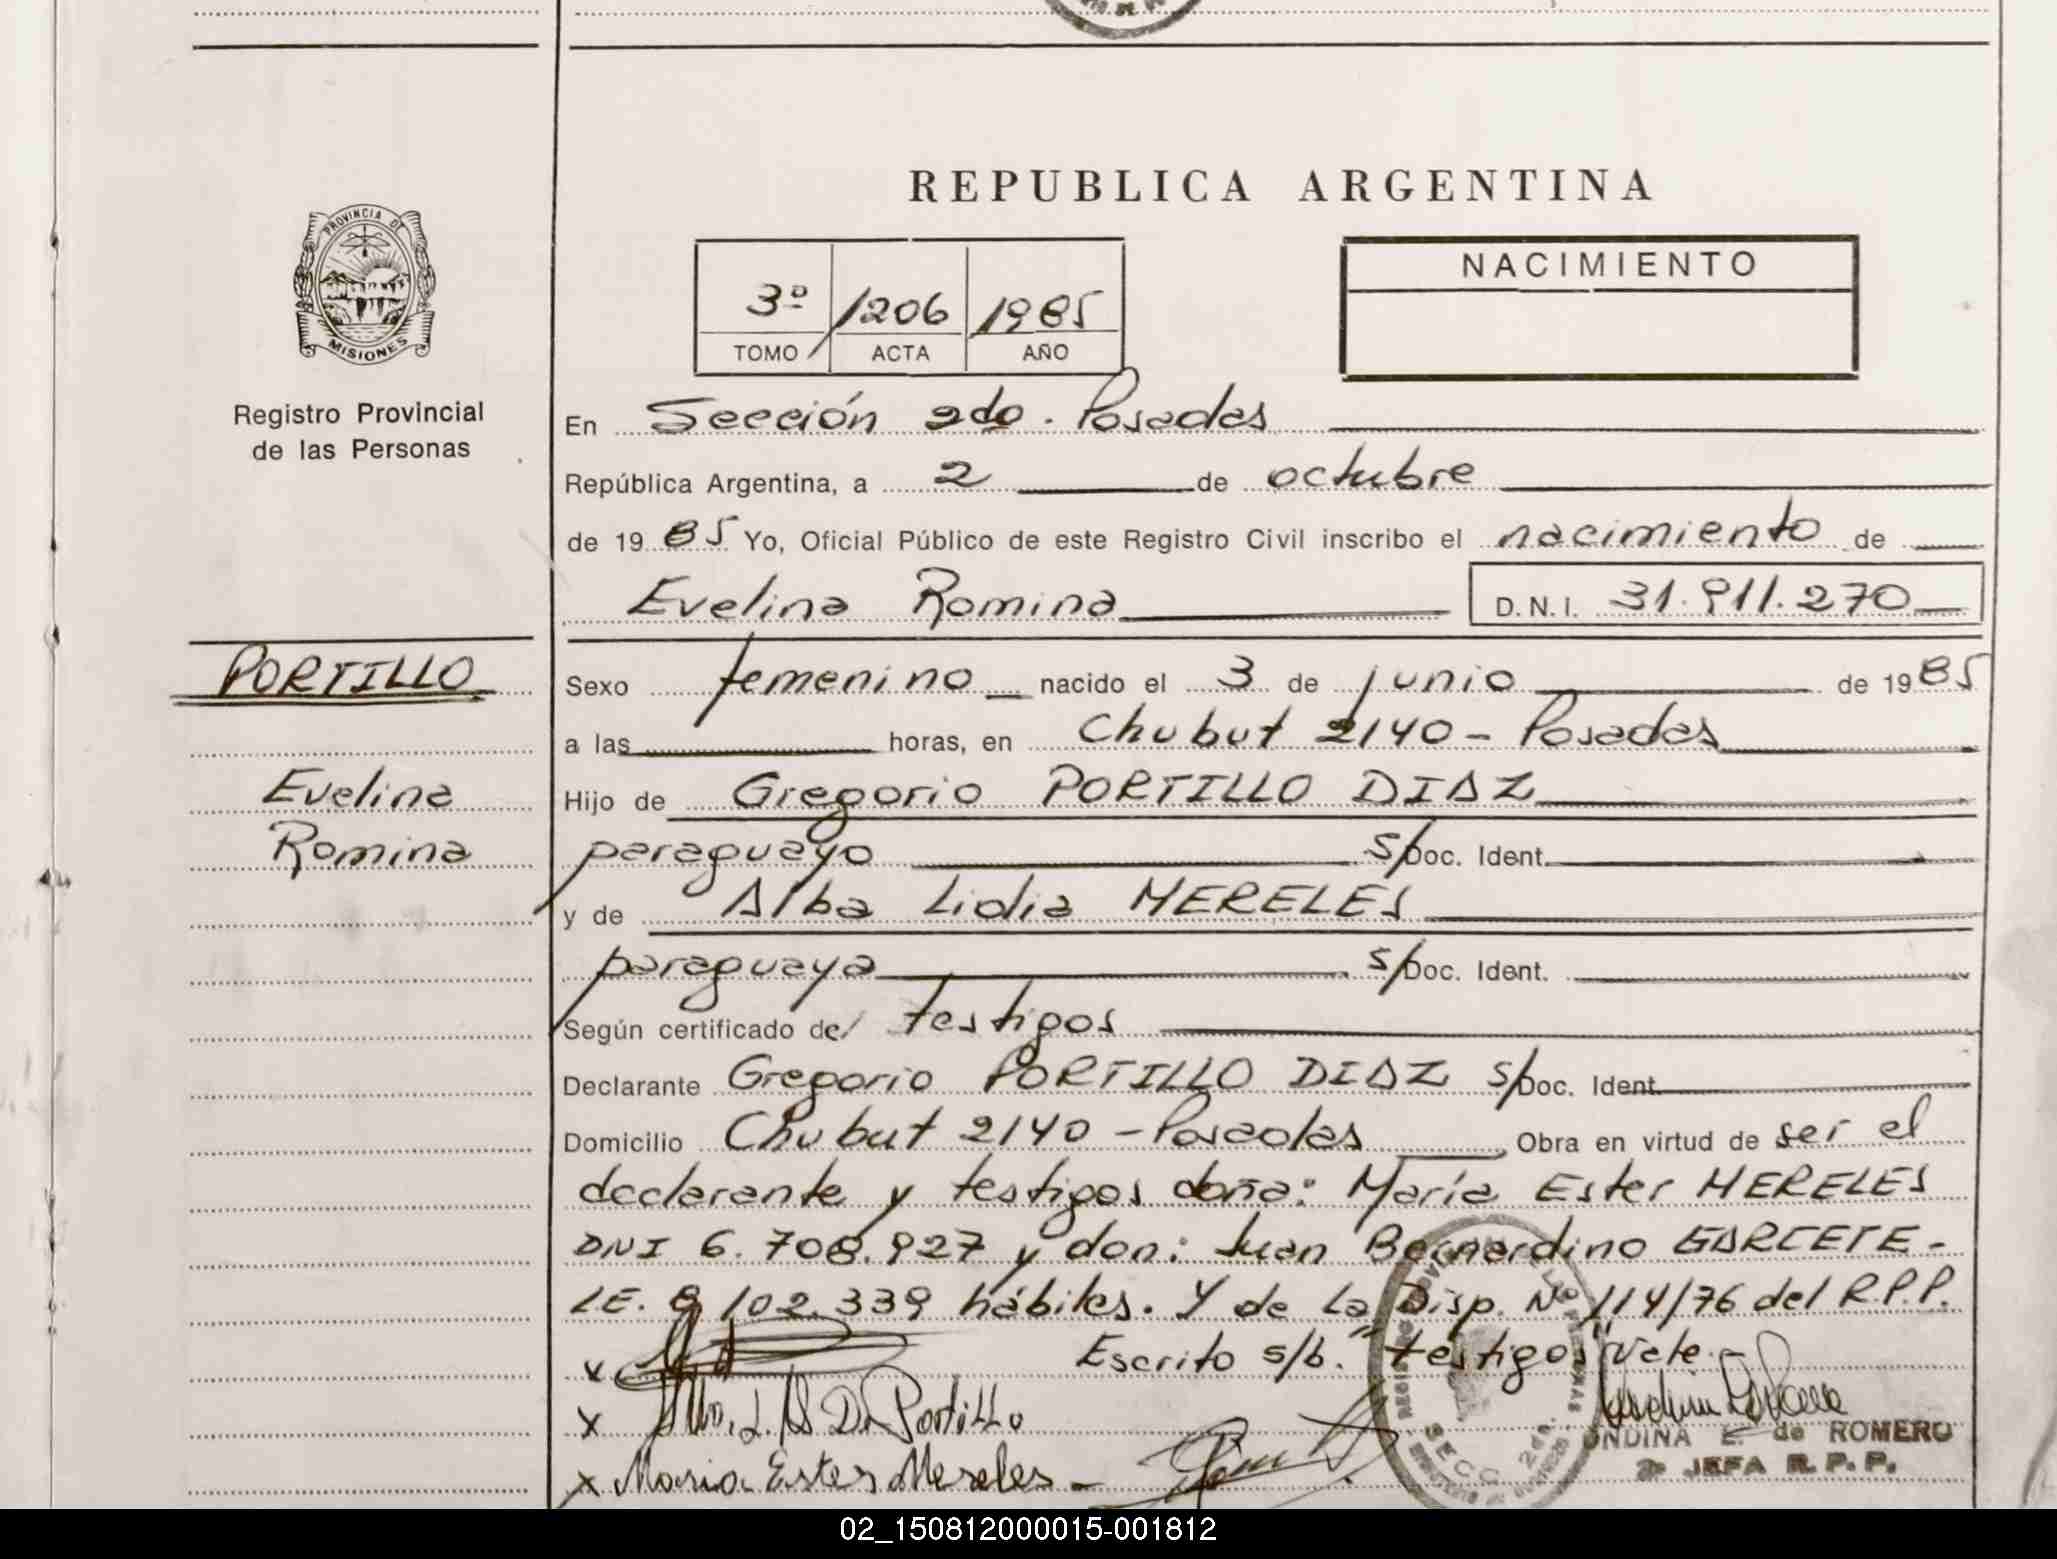 REPUBLICA ARGENTINA
PROVINCIA DE
MISIONES
Registro Provincial
de las Personas
3º /1206 1985
TOMO ACTA AÑO
NACIMIENTO
En Sección 2do. Posadas
República Argentina, a 2 de octubre
de 1985 Yo, Oficial Público de este Registro Civil inscribo el nacimiento de
Evelina Romina D.N.I. 31.911.270
PORTILLO
Evelina
Romina
Sexo femenino nacido el 3 de junio de 1985
a las horas, en Chubut 2140 - Posadas
Hijo de Gregorio PORTILLO DIAZ
paraguayo s/Doc. Ident.
y de Alba Lidia MERELES
paraguaya s/Doc. Ident.
Según certificado de/ testigos
Declarante Gregorio PORTILLO DIAZ s/Doc. Ident.
Domicilio Chubut 2140 - Posadas Obra en virtud de ser el
declarante y testigos doña: María Ester MERELES
DNI 6.708.927 y don: Juan Bernardino GARCETE -
LE. 8.102.339 hábiles. Y de la Disp. Nº 114/76 del R.P.P.
x Escrito s/b. "testigos" Vale.-
x Portillo
x Maria Ester Mereles -
SECC. 2da.
ONDINA E. de ROMERO
JEFA R.P.P.
02_150812000015-001812